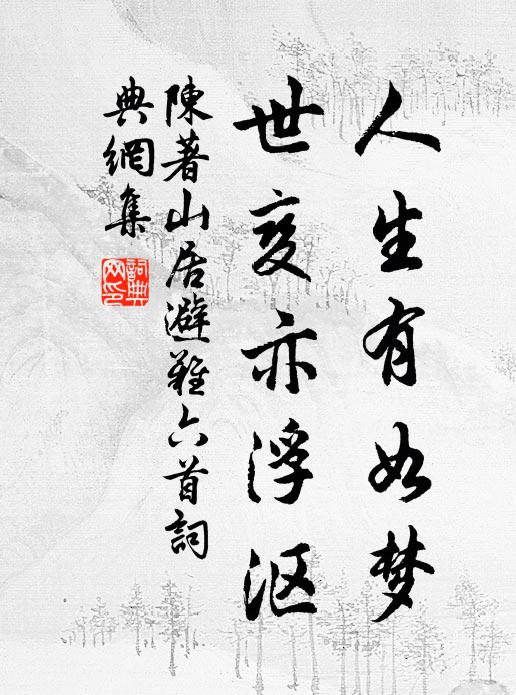 人生有如梦
世变亦浮沤
陳著山居避難六首詞
典網集
詞典
网印